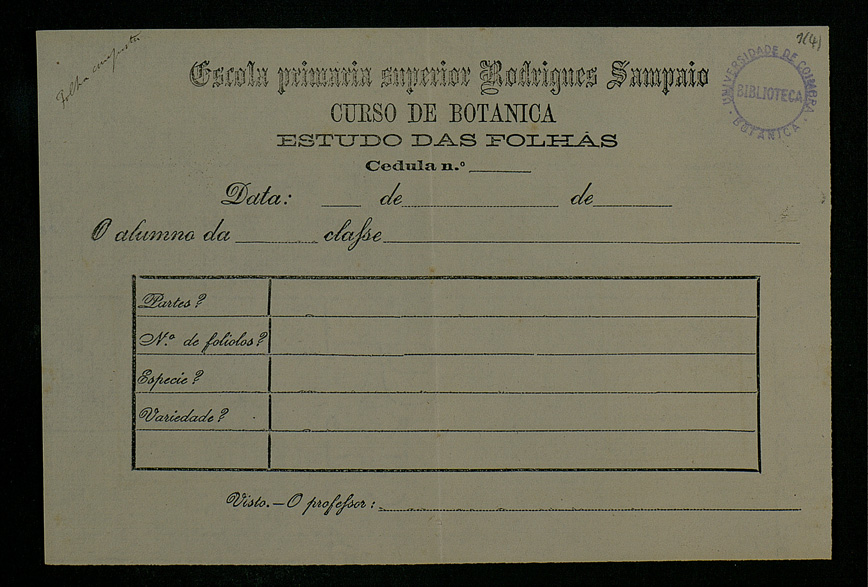 Folha composta
1(4)
UNIVERSIDADE DE COIMBRA
BIBLIOTECA
BOTANICA
Escola primaria superior Rodrigues Sampaio
CURSO DE BOTANICA
ESTUDO DAS FOLHAS
Cedula n.º
Data: de de
O alumno da claſse
Partes?
N.º de foliolos?
Especie?
Variedade?
Visto.—O profeſsor: